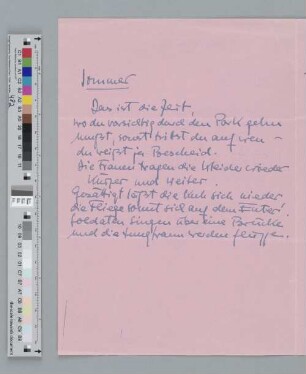 Sommer
Das ist die Zeit,
wo du vorsichtig durch den Park gehn
mußt, sonst trittst du auf wen –
du weißt ja Bescheid.
Die Frauen tragen die Kleider wieder
kürzer und weiter.
Gesättigt läßt die Kuh sich nieder
die Fliege sonnt sich auf dem Euter.
Soldaten singen über eine Brücke
und die Jungfrann werden flügge.